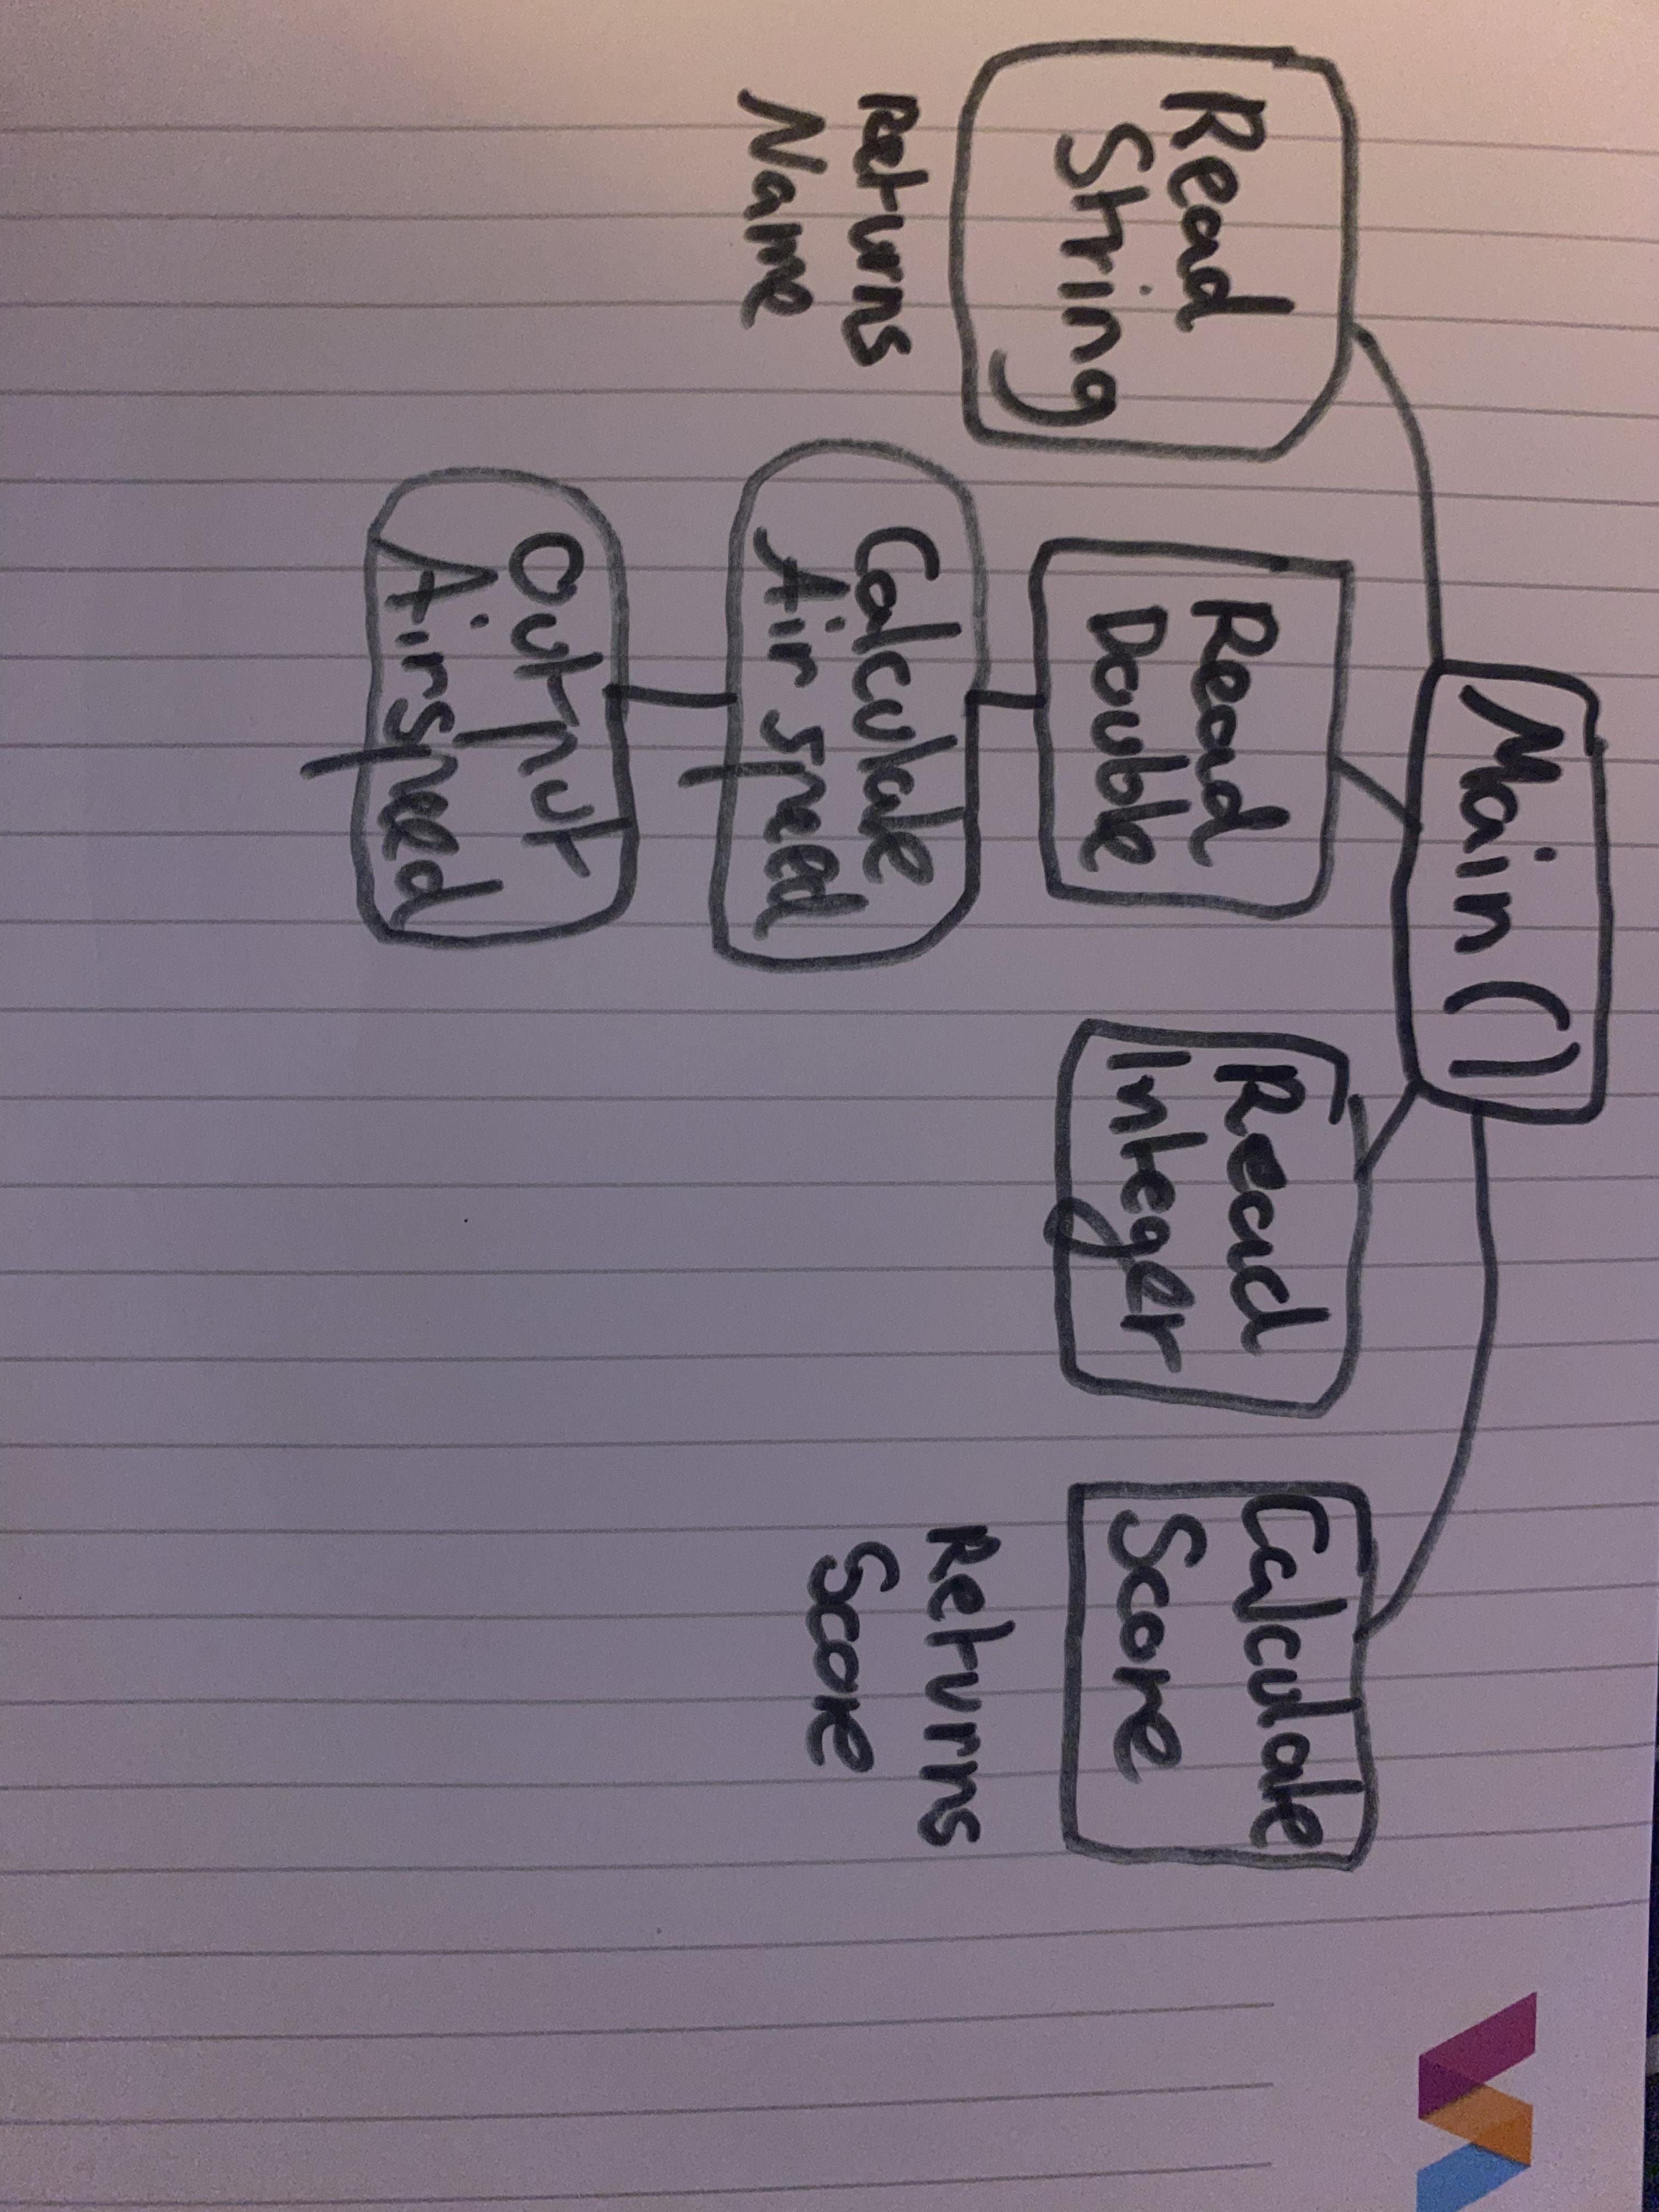 Main ()
Read
String
Returns
Name
Read
Double
Calculate
Air speed
Output
Airspeed
Read
Integer
Calculate
Score
Returns
Score